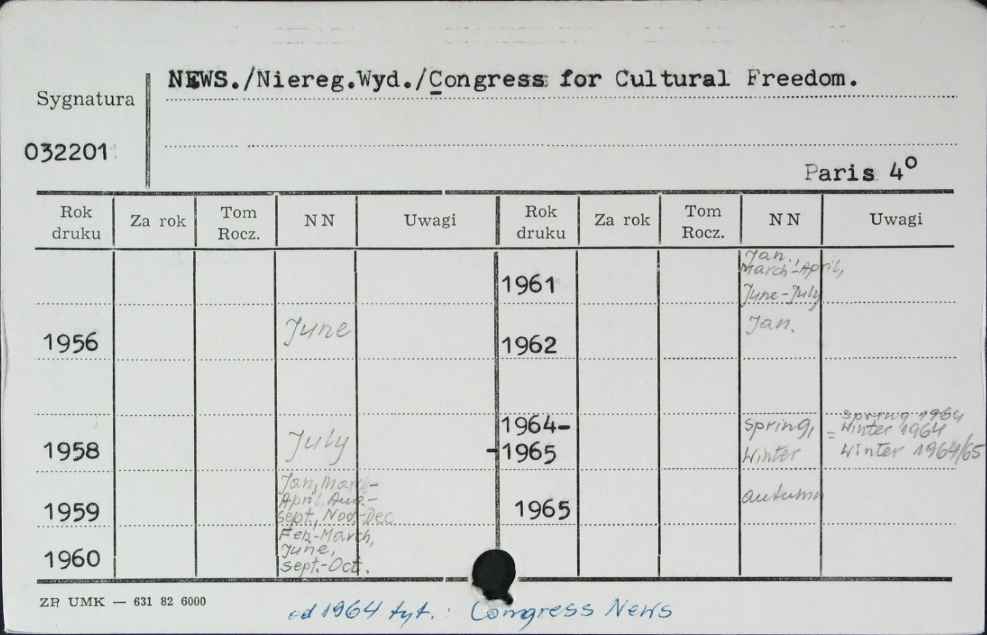 NEWS./Niereg.Wyd./Congress for Cultural Freedom.
Sygnatura
032201
Paris 4°
Rok druku Za rok Tom Rocz. NN Uwagi Rok druku Za rok Tom Rocz. NN Uwagi
1961 Jan. March-April, June-July
1956 June
1962 Jan.
1964-1965 spring, Winter = spring 1964 Winter 1964 Winter 1964/65
1958 July
1959 Jan, March-April, Aug-Sept., Nov.-Dec
1965 autumn
1960 Feb-March, June, Sept.-Oct.
ZP UMK — 631 82 6000
od 1964 tyt.: Congress News